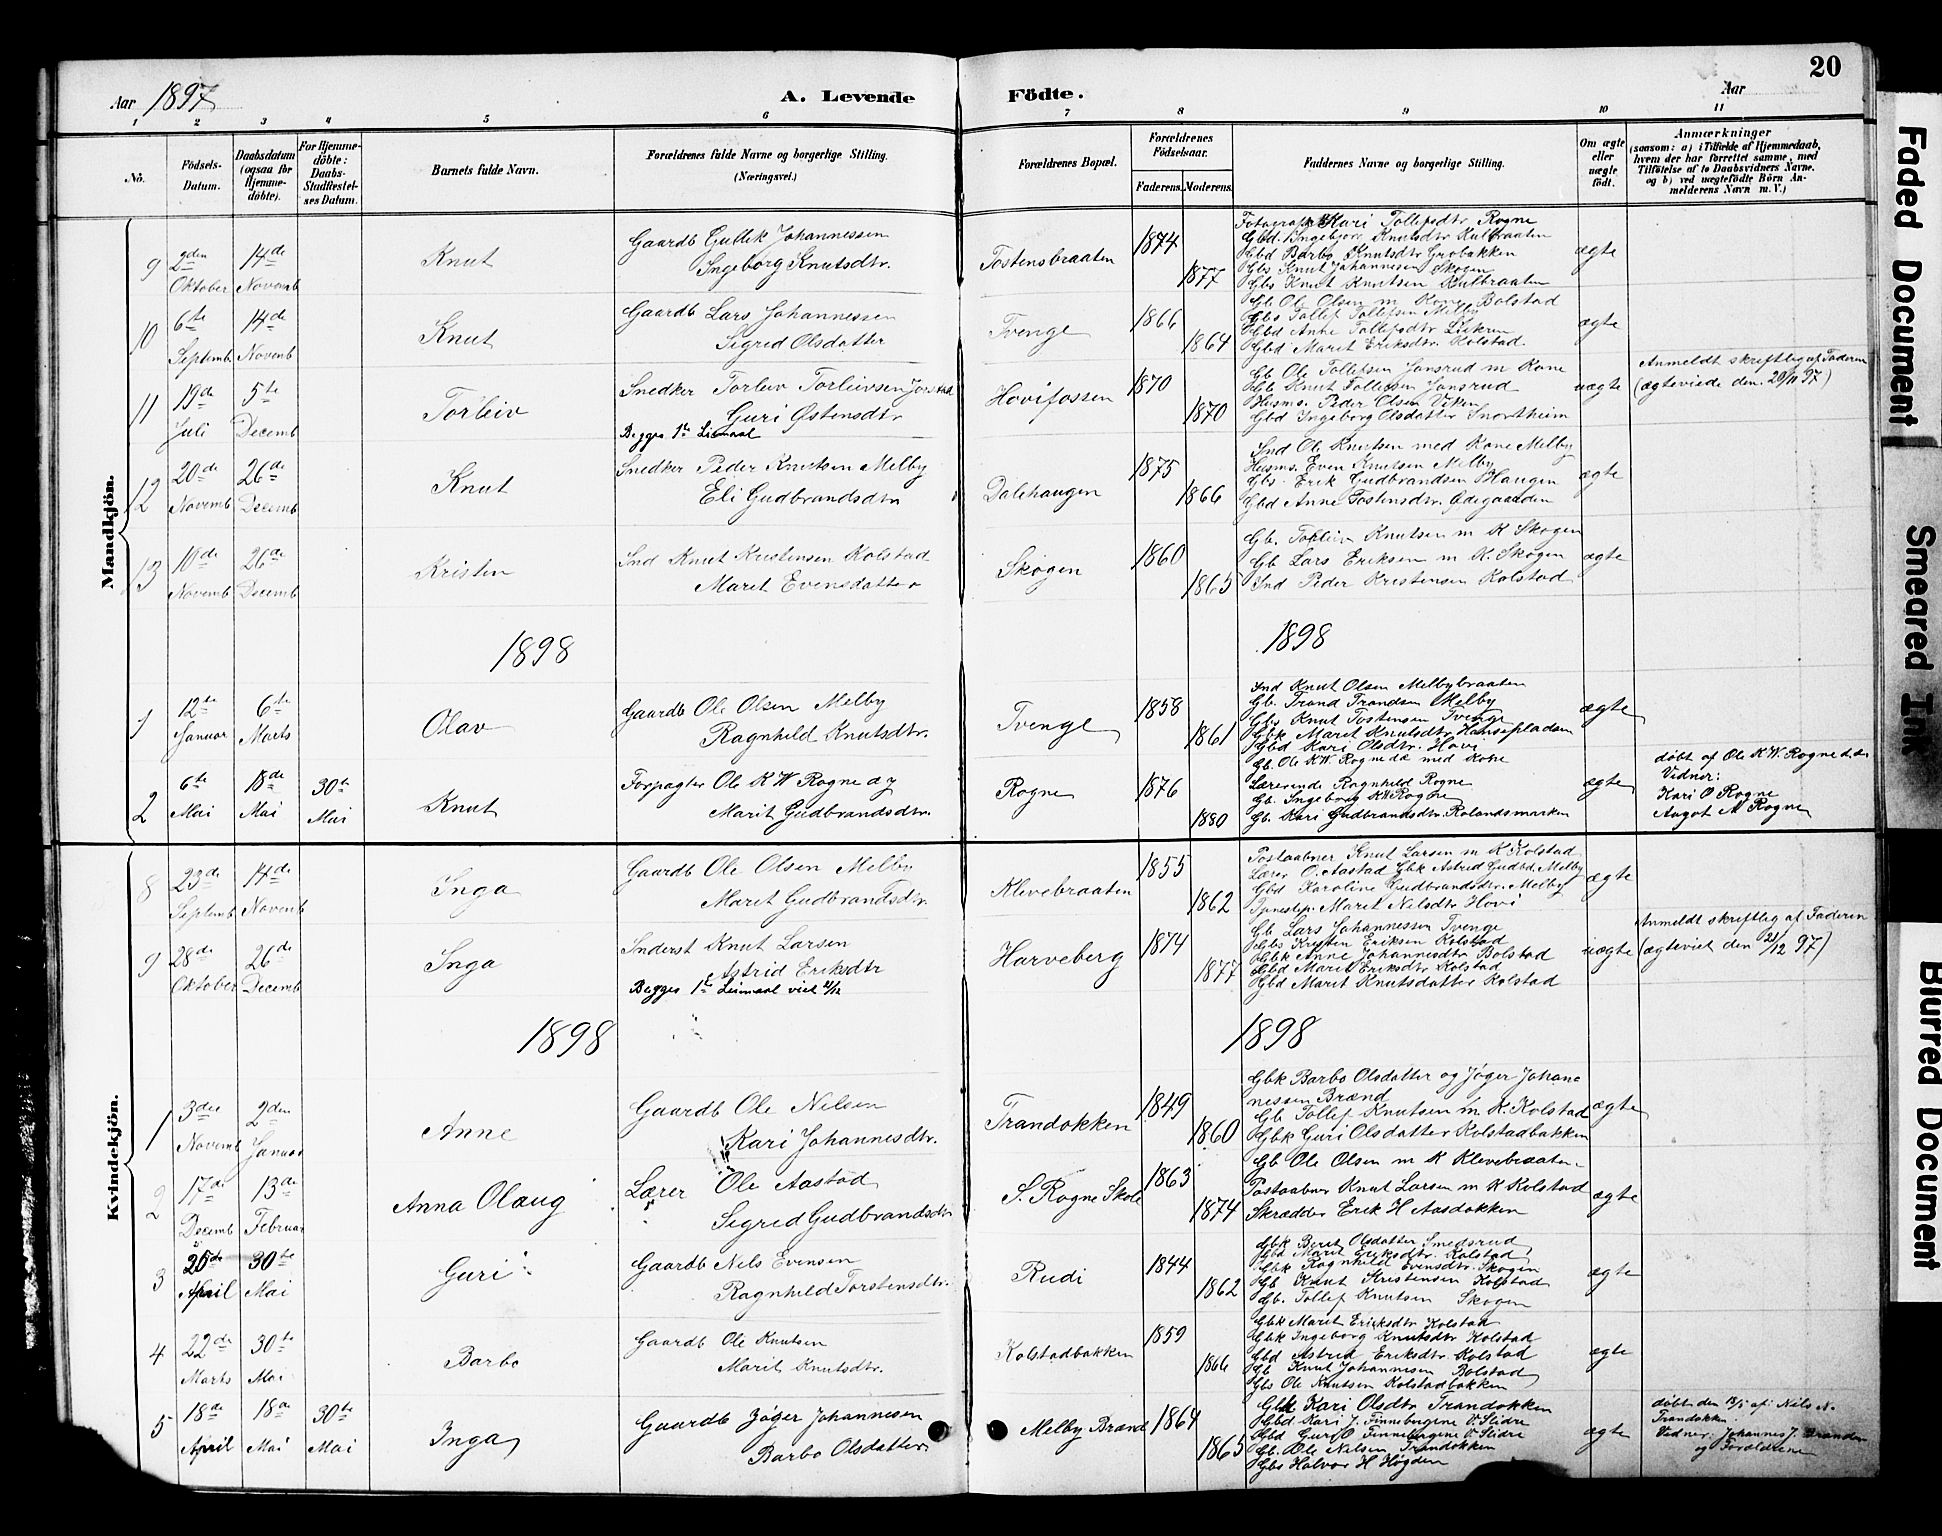 Aar 1897
A. Levende Födte.
Aar
20
1 2 3 4 5 6 7 8 9 10 11
No.
Födsels-Datum.
Daabsdatum (ogsaa för Hjemme-döbte).
For Hjemme-döbte: Daabs-Stadfæstel-ses Datum.
Barnets fulde Navn.
Forældrenes fulde Navne og borgerlige Stilling. (Næringsvei.)
Forældrenes Bopæl.
Forældrenes Födselsaar.
Faderens. Moderens.
Faddernes Navne og borgerlige Stilling.
Om ægte eller uægte födt.
Anmærkninger
(saasom: a) i Tilfælde af Hjemmedaab, hvem der har forrettet samme, med Tilföielse af to Daabsvidners Navne. og b) ved uægtefödte Börn An-melderens Navn m. V.)
Mandkjön.
9 2den Oktober 14de Novemb
Knut
Gaardb Gullek Johannessen
Ingeborg Knutsdtr.
Tostensbraaten
1874
1877
Kari Tollefsdtr Rogne
Gbd Ingebjörg Knutsdtr Kulbraaten
Gbd Barbo Knutsdtr Grobakken
Gbs Knut Johannesen Skogen
Gbs Knut Knutsen Kulbraaten
ægte
10 6te Septemb 14de Novemb
Knut
Gaardb Lars Johannessen
Sigrid Olsdatter
Tvenge
1866
1864
Gb Ole Olsen m Kone Bolstad
Gbs Tollef Tollefsen Melby
Gbd Anne Tollefsdtr
Gbd Marit Eriksdtr. Kolstad.
ægte
11 19de Juli 5te Decemb
Torleiv
Snedker Torleiv Torleivsen
Guri Østensdtr
Begges 1te Leiemaal
Hovifossen
1870
1870
Gb Ole Tollefsen Jonsrud m Kone
Gb Knut Tollefsen Jonsrud
Husms. Peder Olsen Viken
Gbd Ingeborg Olsdatter Snortheim
uægte
Anmeldt skriftlig af Faderen
(ægteviede den 20/11 97)
12 20de Novemb 26de Decemb
Knut
Snedker Peder Knutsen Melby
Eli Gudbrandsdtr
Dalehaugen
1875
1866
Ind Ole Knutsen med Kone Melby
Husms. Even Knutsen Melby
Gbs. Erik Gudbrandsen Haugen
Gbd Anne Tostensdtr. Ødegaarden
ægte
13 10de Novemb 26de Decemb
Kristen
Ind Knut Kristensen Kolstad
Marit Evensdatter
Skogen
1860
1865
Gb. Tolleiv Knutsen m K Skogen
Gb Lars Eriksen m K. Skogen
Ind Peder Kristensen Kolstad
ægte
1898
1898
1 12te Januar 6te Marts
Olav
Gaardb Ole Olsen Melby
Ragnhild Knutsdtr.
Tvenge
1858
1861
Ind Knut Olsen Melbybraaten
Gb. Trond Trondsen Melby
Gbs Knut Tostensen Tvenge
Gbk Marit Knutsdtr Hansepladsen
Gbd Kari Olsdtr. Hove
ægte
2 6te Mai 18de Mai 30te Mai
Knut
Forpagter Ole K W Rogne d y
Marit Gudbrandsdtr.
Rogne
1876
1880
Gb. Ole KW Rogne d.æ med Kone
Lærerinde Ragnhild Rogne
Gb. Ingeborg KW Rogne
Gb. Kari Gudbrandsdtr. Rolandsmarken
ægte
döbt af Ole K.W. Rogne d. æ.
Vidner:
Kari O Rogne
Angot M Rogne
Kvindekjön.
8 23de Septemb 14de Novemb
Inga
Gaardb Ole Olsen Melby
Marit Gudbrandsdtr.
Klevebraaten
1855
1862
Postaabner Knut Larsen m K Kolstad
Lærer O. Aastad Gbk Astrid Gudbd. Melby
Gbd Karoline Gudbrandsdtr. Melby
Tjenestep. Marit Nilsdtr Hovi
ægte
9 28de Oktober 26de Decemb
Inga
Inderst Knut Larsen
Astrid Eriksdtr
Begges 1te Leiemaal viet
Harveberg
1874
1877
Gb Lars Johannessen Tvenge
Gbs Kristen Eriksen Kolstad
Gbk Anne Johannesdtr Bolstad
Gbd Marit Eriksdtr Kolstad
Gbd Marit Knutsdatter Kolstad
uægte
Anmeldt skriftlig af Faderen
(ægteviet den 21/12 97)
1898
1898
1 3die Novemb 2den Januar
Anne
Gaardb Ole Nilsen
Kari Johannesdtr.
Trandokken
1849
1860
Gbk Barbo Olsdatter og Jøger Johan-
nessen Brænd
Gb Tollef Knutsen m. K. Kolstad
Gbk Guri Olsdatter Kolstadbakken
ægte
2 17de Decemb 13de Februar
Anna Olaug
Lærer Ole Aastad
Sigrid Gudbrandsdtr
S. Rogne Skole
1863
1874
Gb Ole Olsen m K Klevebraaten
Postaabner Knut Larsen m K Kolstad
Skrædder Erik H Aasdokken
ægte
3 26de April 30te Mai
Guri
Gaardb Nils Evensen
Ragnhild Torstensdtr.
Rudi
1844
1862
Gbk Berit Olsdatter Smedsrud
Gbd Marit Eriksdtr. Kolstad
Gbk Ragnhild Evensdtr. Skogen
Gb Knut Kristensen Kolstad
Gb. Tollef Knutsen Skogen
ægte
4 22de Marts 30te Mai
Barbo
Gaardb Ole Knutsen
Marit Knutsdtr.
Kolstadbakken
1859
1866
Gbk Marit Eriksdtr Kolstad
Gbk Ingeborg Knutsdtr Kolstad
Gbd Astrid Eriksdtr Kolstad
Gb Knut Johannesen Bolstad
Gbs Ole Knutsen Kolstadbakken
ægte
5 18de April 18de Mai 30te Mai
Inga
Gaardb Jøger Johannesen
Barbo Olsdatter
Melby Brænd
1864
1865
Gbk Kari Olsdtr Trandokken
Gbd Kari J. Finnebugene V. Slidre
Gbd Guri O Finnebugene V. Slidre
Gb. Ole Nilsen Trandokken
Gbs Halvor H Høgden
ægte
döbt den 18/5 af: Nils N.
Trandokken.
Vidner: Johannes J. Brænden
og Forældrene
Faded Document
Smeared Ink
Blurred Document